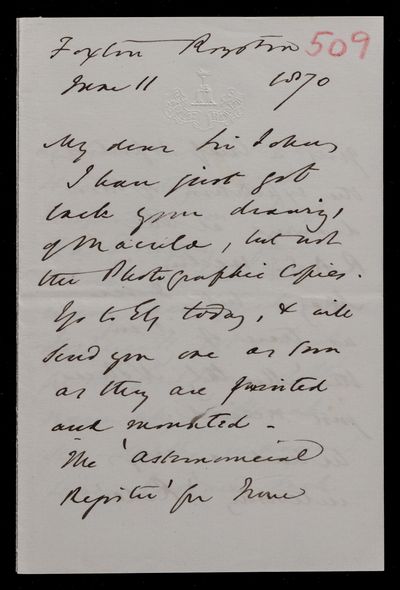 Foxton Royston 509
June 11 1870
My dear Sir John,
I have just got
back your drawings
of Macula, but not
the Photographic Copies.
Go to Ely today, & will
send you one as soon
as they are printed
and mounted -
The 'Astronomical
Register' for June